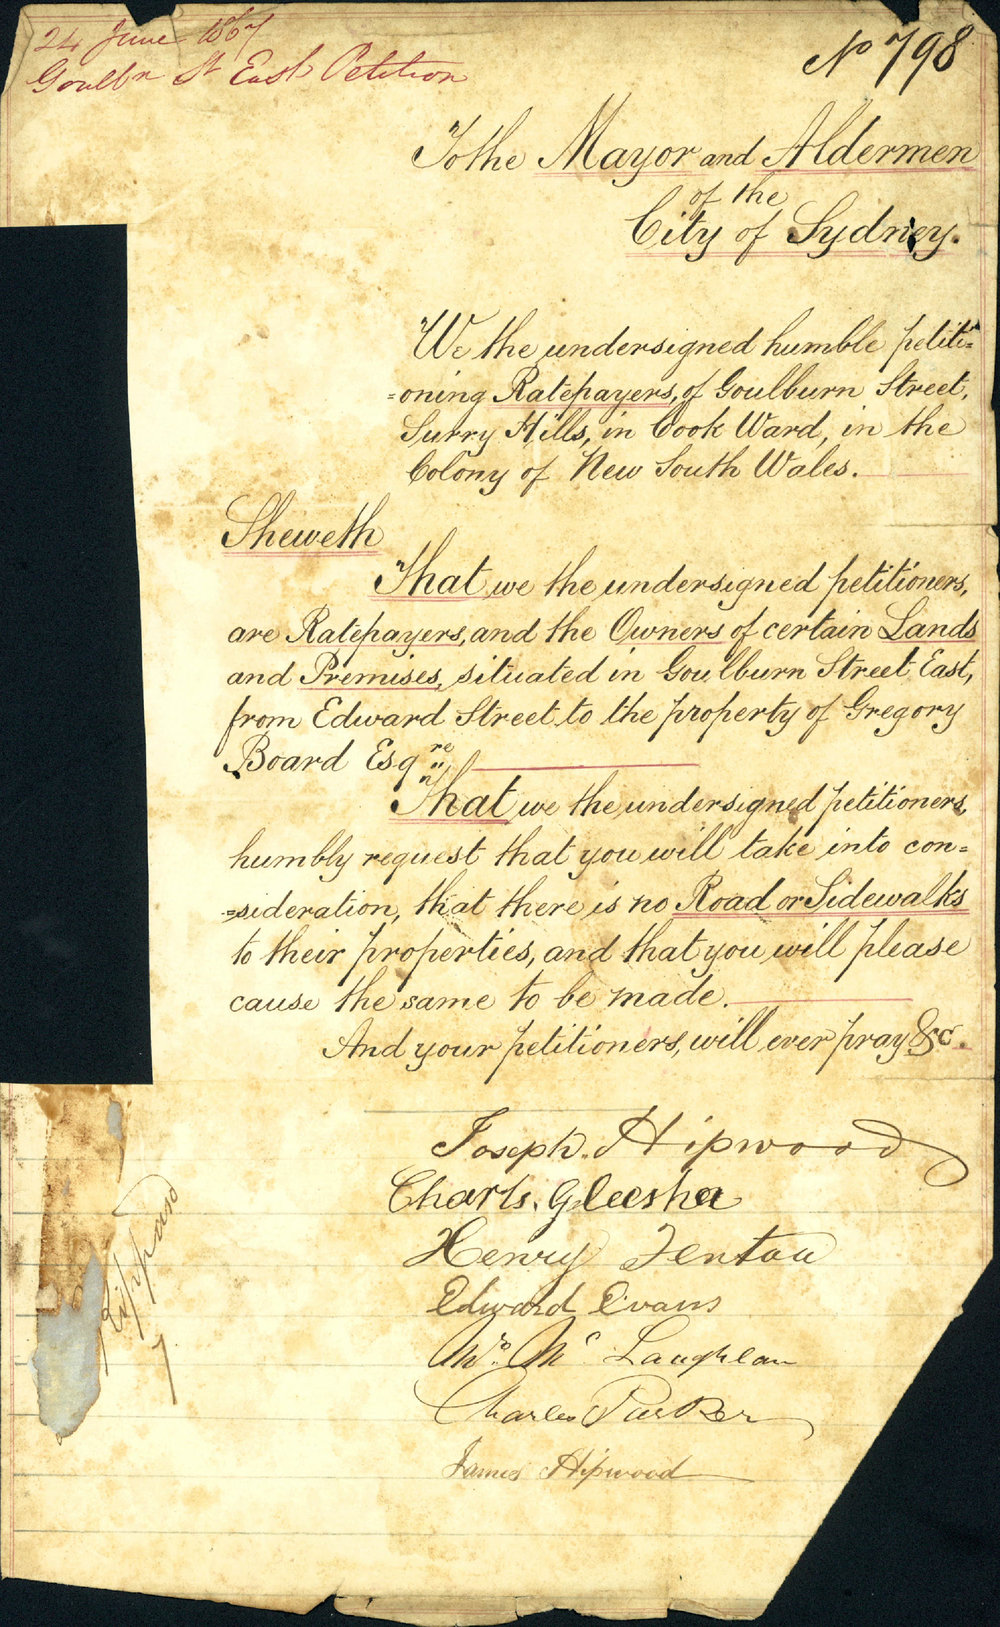 24 June 1867
Goulbn St East Petition
No 798
To the Mayor and Aldermen
of the
City of Sydney.
We the undersigned humble petiti=
=oning Ratepayers, of Goulburn Street,
Surry Hills, in Cook Ward, in the
Colony of New South Wales.
Sheweth
That we the undersigned petitioners,
are Ratepayers, and the Owners of certain Lands
and Premises, situated in Goulburn Street East,
from Edward Street to the property of Gregory
Board Esqre
That we the undersigned petitioners,
humbly request that you will take into con=
=sideration, that there is no Road or Sidewalks
to their properties, and that you will please
cause the same to be made.
And your petitioners, will ever pray &c.
Joseph Hipwood
Charls. Gleesha
Henry Fentou
Edward Evans
Mc Laughlan
Charles Parker
James Hipwood
7